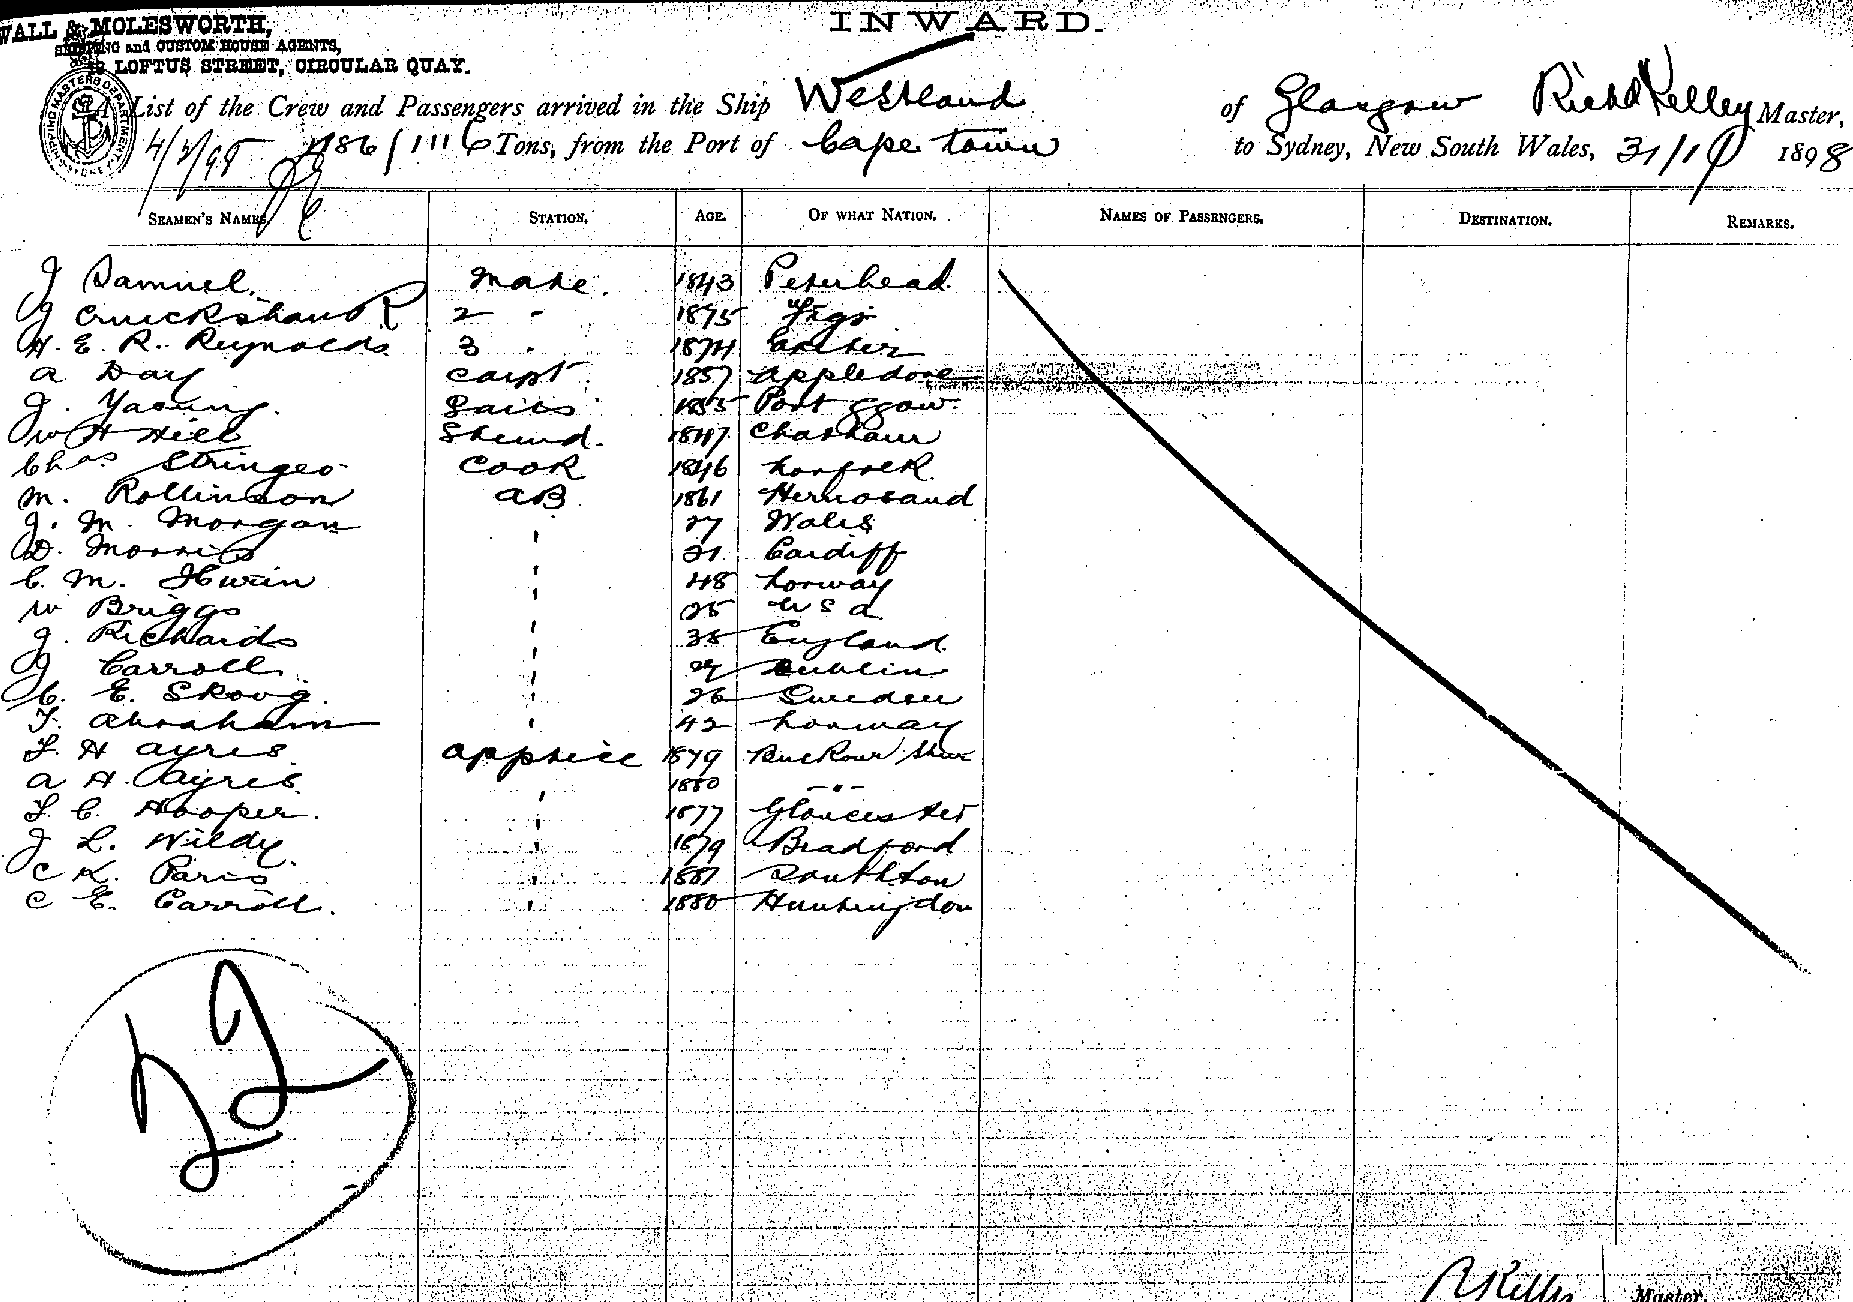 INWARD.
WALL & MOLESWORTH,
SHIPPING and CUSTOM HOUSE AGENTS,
LOFTUS STREET, CIRCULAR QUAY.
SHIPPING MASTERS DEPARTMENT
A List of the Crew and Passengers arrived in the Ship Westland of Glasgow Richd Kelley Master,
1186/1116 Tons, from the Port of Cape town to Sydney, New South Wales, 31/1/ 1898
SEAMEN'S NAMES. STATION. AGE. OF WHAT NATION. NAMES OF PASSENGERS. DESTINATION. REMARKS.
J Samuel. Mate. 1843 Peterhead
J Cruickshank 2 " 1875
H. E. R. Reynolds 3 " 1874
A Day Carpt. 1857 Appledore
J. Young. Sails 1835 Port Ggow.
W H Hill Stewd. 1847 Chatham
Chas Stringer Cook 1846 Norfolk
M. Rollinson AB 1861 Hernosand
J. M. Morgan " 27 Wales
D. Morris " 21 Cardiff
C. M. " 48 Norway
W Briggs " 25 U S A
J. Richards " 35 England
J Carroll " 27 Dublin
C. E. Skoog " 26 Sweden
F. Abraham " 42 Norway
F. H Ayris apptice 1879
A H. Ayris " 1880 - " -
F. C. Hooper. " 1877 Gloucester
J L. Wildy. " 1879 Bradford
C K. Paris " 1881 Southton
C E. Carroll. " 1880 Huntingdon
R Kelley Master.